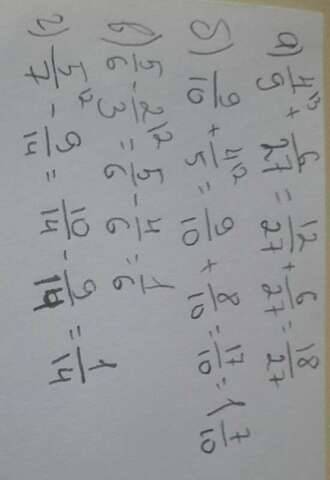 а) 4/9 ¹³ + 6/27 = 12/27 + 6/27 = 18/27
б) 9/10 + 4/5 ¹² = 9/10 + 8/10 = 17/10 = 1 7/10
в) 5/6 - 2/3 ¹² = 5/6 - 4/6 = 1/6
г) 5/7 ¹² - 9/14 = 10/14 - 9/14 = 1/14